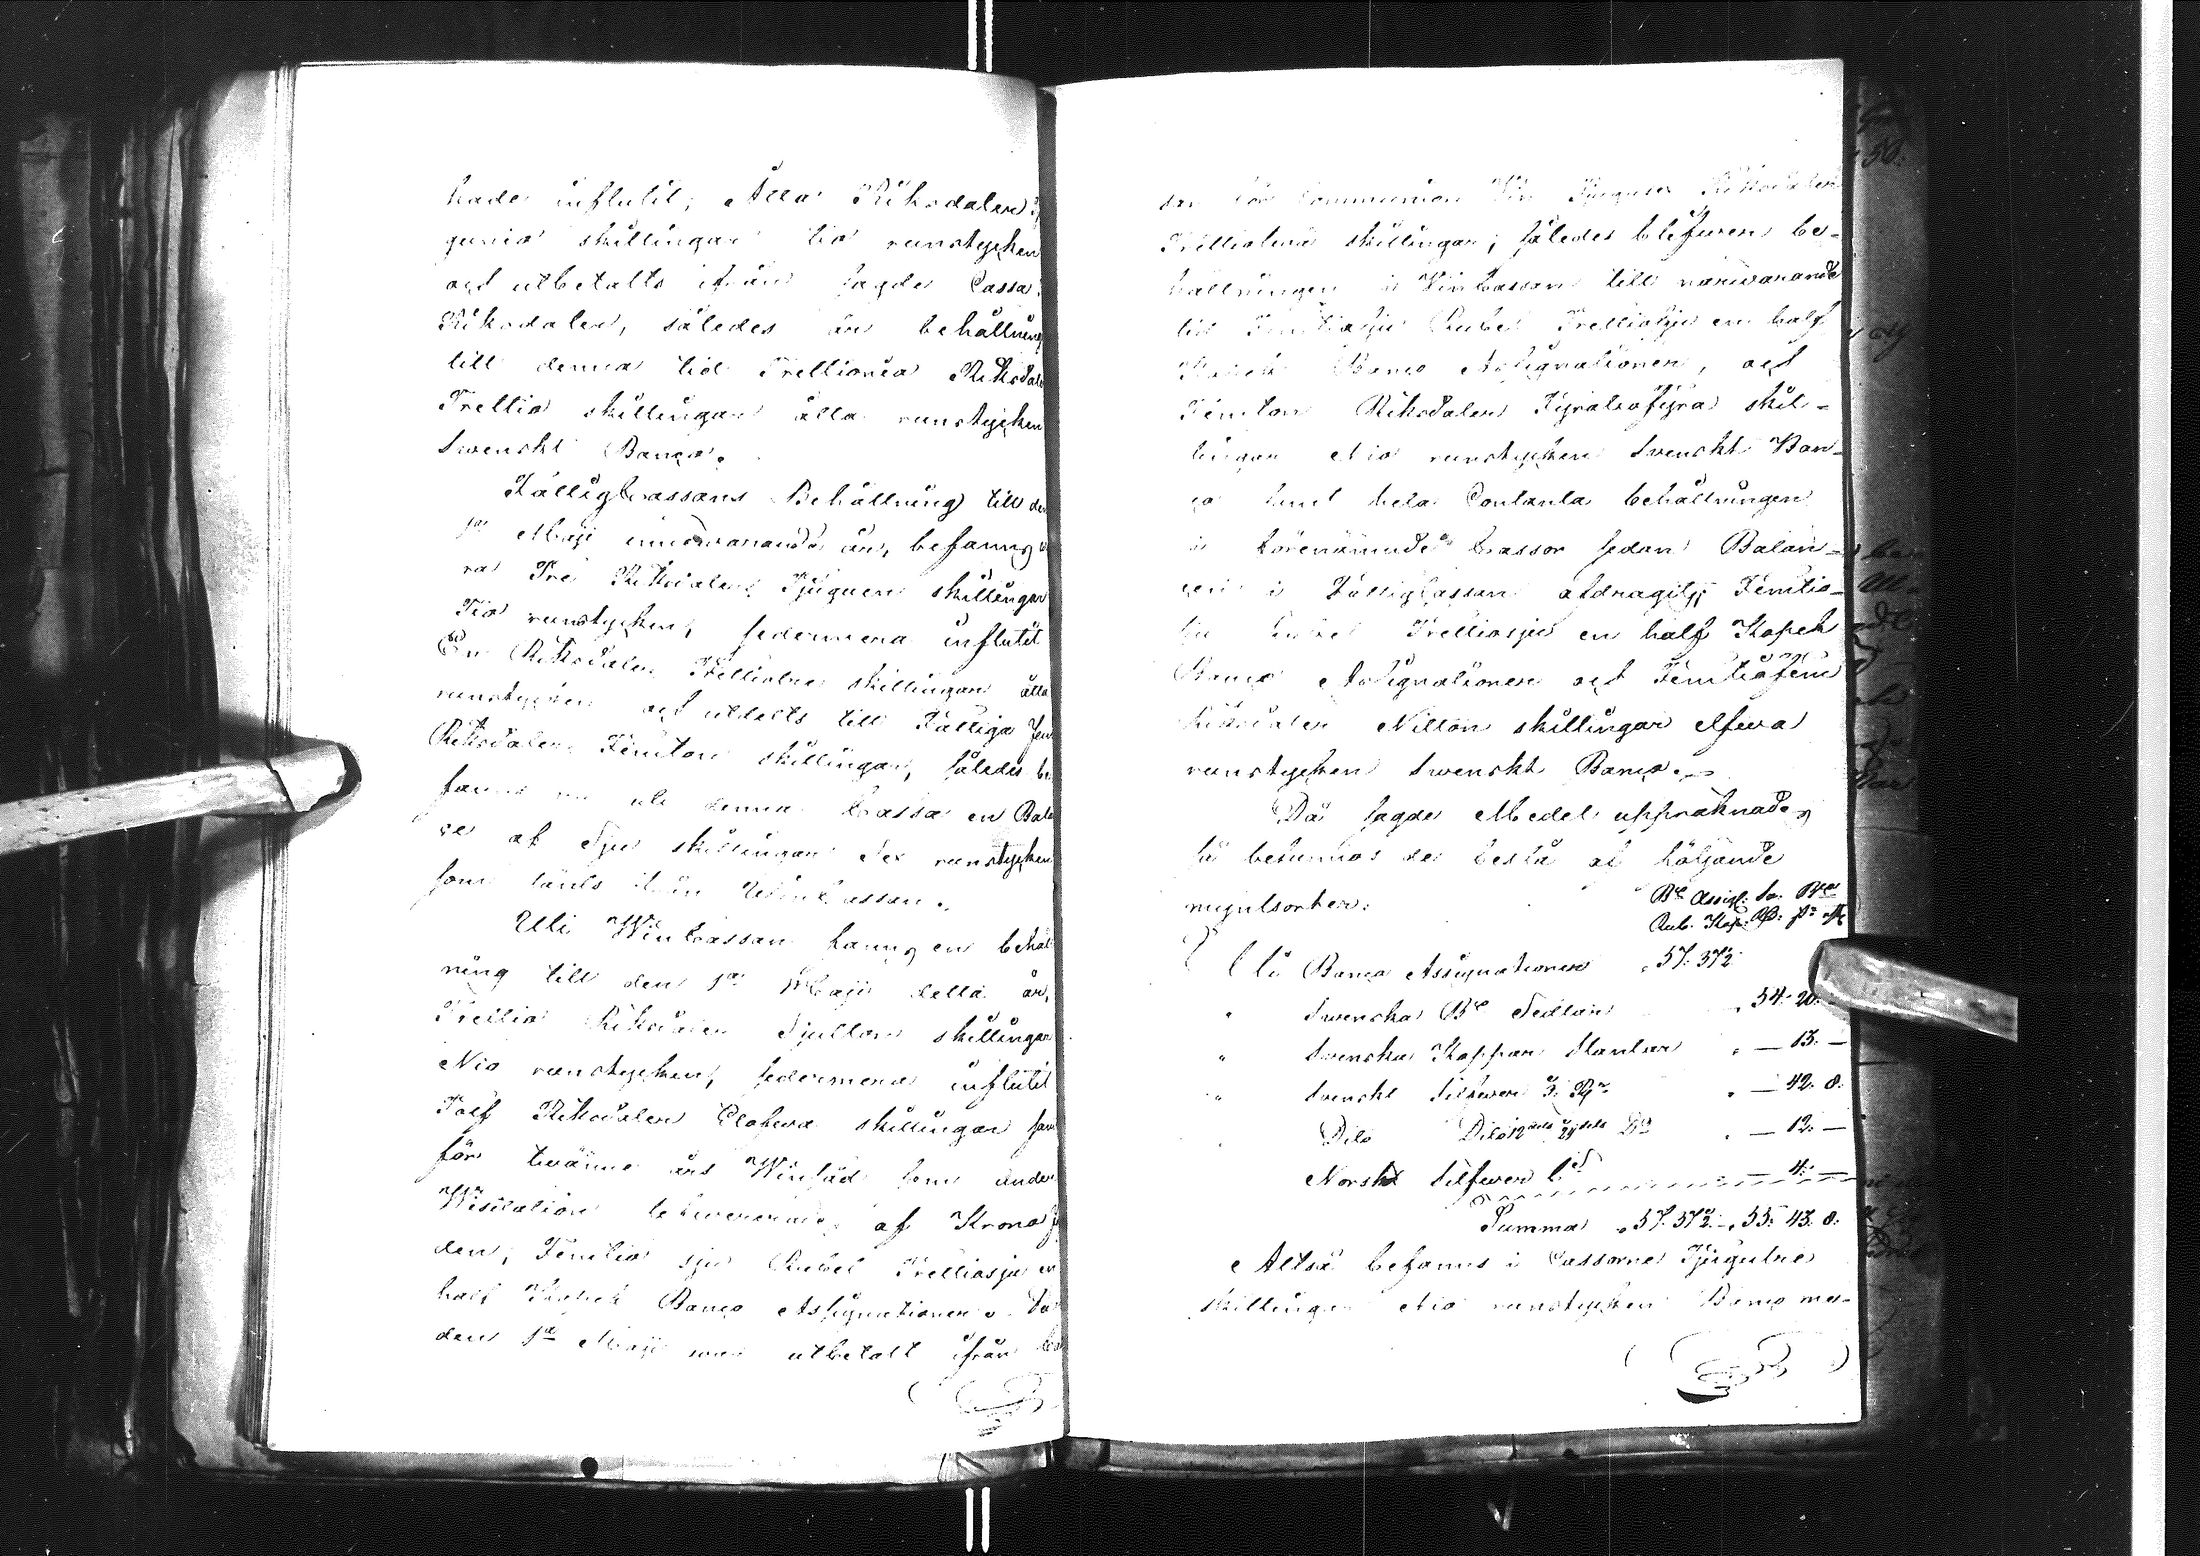 hade influtit, Åtta Riksdaler
gunio skillingar tio runstycken
och utbetalts ifrån sagde Cassa
Riksdaler, således är behållning
till denna tid Trettionio Riksdal
Trettio skillingar åtta runstycken
Swenskt Banco.
FattigCassans Behållning till den
1a Maji innewarande år, befanns
ra Tre Riksdaler Tjuguen skillingar
Tio runstycken, sedermera influtit
En Riksdaler Trettiotre skillingar åtta
runstycken och utdelts till Fattiga Fem
Riksdaler Femton skillingar, således be
fanns nu uti denna Cassa en Bala
ce af Sju skillingar Sex runstycken
som lånts ifrån WinCassan.
Uti WinCassan fanns en behål
ning till den 1a Maji detta år,
Trettio Riksdaler Sjutton skillingar
Nio runstycken, sedermera influtit
Tolf Riksdaler Elofwa skillingar
för twänne års Winsäd som under
Wisitation af Krono
den, Femtio sju Rubel Trettiosju en
half Kopek Banco Assignationer
den 1a Maji war utbetalt ifrån
för Communion Win Tjugusex Riksdaler
Trettiofem skillingar, således blefwen be-
hållningen i WinCassan till närwarande
tid Femtiosju Rubel Trettiosju en half
Kopek Banco Assignationer, och
Femton Riksdaler Fyratiofyra skil-
lingar Nio runstycken Svenskt Ban-
co samt hela Contanta behållningen
i förenämnde Cassor sedan Balan-
cen i FattigCassan afdragits Femtio-
sju Rubel Trettiosju en half Kopek
Banco Assignationer och Femtiofem
Riksdaler Nitton skillingar Elfwa
runstycken Swenskt Banco.
Då sagde Medel uppräknades
så befunnos de bestå af följande
myntsorter:
Bco Assign. Bco
Rub. Kop.
Banco Assignationer 57. 37½
Swenska Bco Sedlar 54. 20.
Svenska Koppar Slantar — 13. —
Svenskt Silfwer — 42. 8.
Dito Dito — 12. —
Norskt Silfwer — 4. —
Summa 57. 37½. 55. 43. 8.
Altså befanns i Cassorne Tjugutre
skillingar Nio runstycken Banco mer